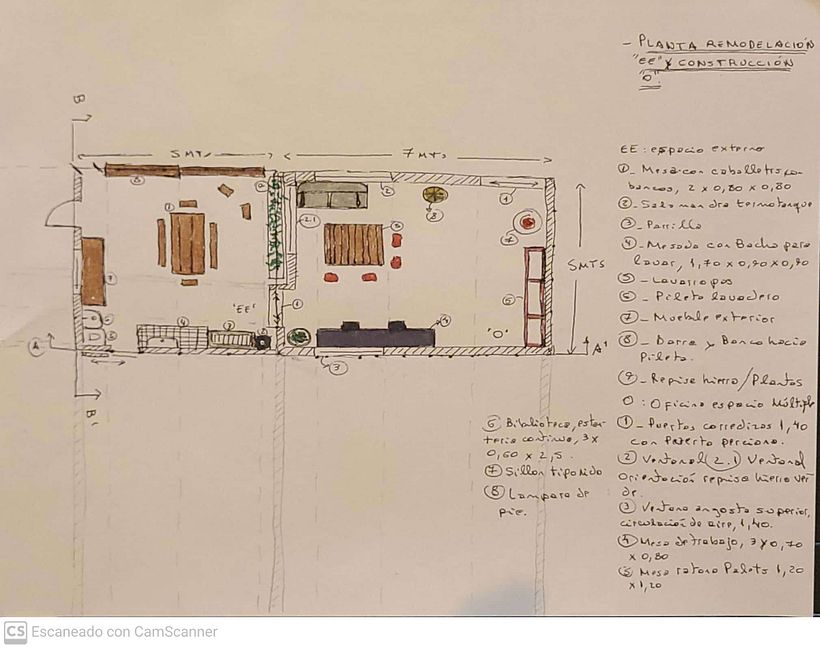 - PLANTA REMODELACIÓN
"EE" Y CONSTRUCCIÓN
"O"
B
5 MTS
7 MTS
5 MTS
'EE'
'O'
A
A'
B'
EE: espacio externo
① - Mesa con caballetes, con
bancos, 2 x 0,80 x 0,80
② - Salamandra termotanque
③ - Parrilla
④ - Mesada con Bacha para
lavar, 1,70 x 0,90 x 0,90
⑤ - Lavarropas
⑥ - Pileta lavadero
⑦ - Mueble exterior
⑧ - Barra y Banco hacia
Pileta.
⑨ - Repisa hierro/Plantas
O: Oficina espacio Múltiple
① - Puertas corredizas 1,40
con
② Ventanal (2.1) Ventanal
Orientación repisa hierro ver
de.
③ Ventana angosta superior,
circulación de aire, 1,40.
④ Mesa de trabajo, 3 x 0,70
x 0,80
⑤ Mesa ratona Palets 1,20
x 1,20
⑥ Biblioteca, estan
teria continua, 3 x
0,60 x 2,5.
⑦ Sillon tipo nido
⑧ Lampara de
pie.
CS Escaneado con CamScanner